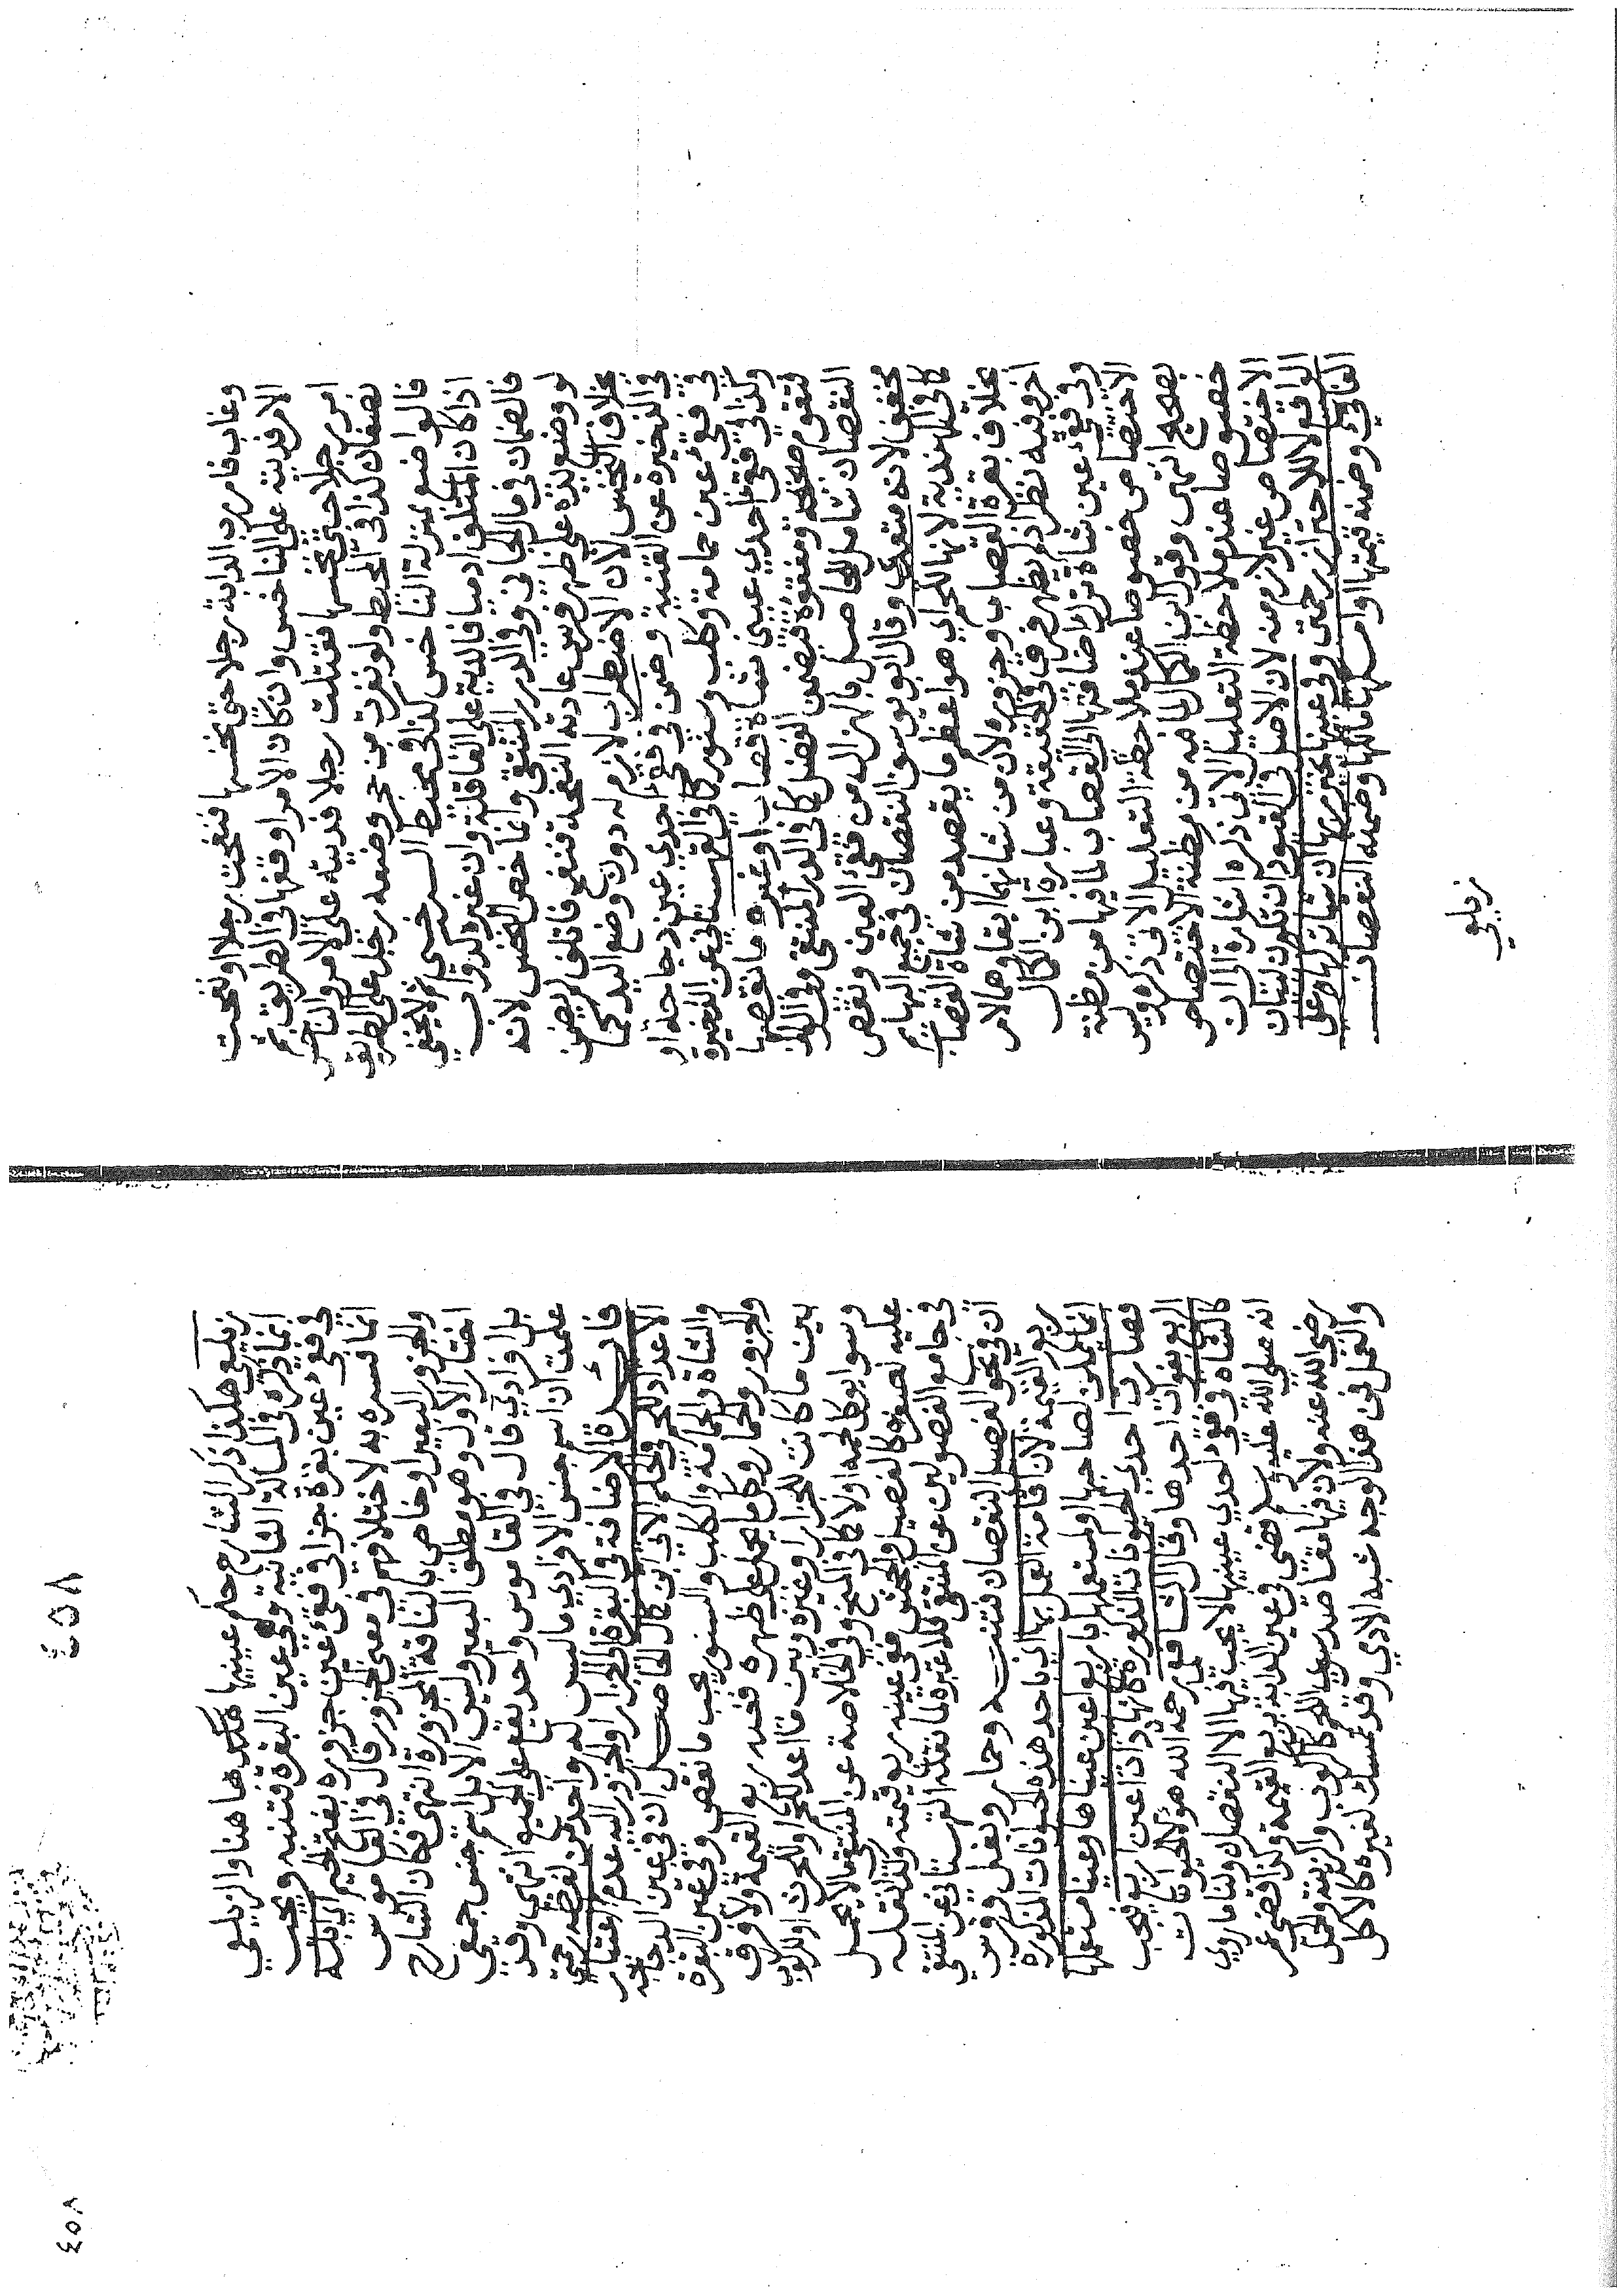 وغاب فامر رب الدابة رجلا حتى نخسها فنفحت رجلا او نفحت
الامر فديته على الناخس وان كان الامر اوقفها في الطريق ثم
امر رجلا حتى نخسها فقتلت رجلا فديته على الامر والناخس
نصفان كذا في المحيط ولو نفرت من حجر وضعه رجل على الطريق
قالوا ضع بمنزلة الناخس كذا في محيط السرخسي ثم لا يخفى
اذا كان المتلف ادميا فالدية على العاقلة وان غيره كدواب
فالضمان في مال الجاني وفي الدرر المنتقى وانما خص النخس لانه
لو وضع يده على ظهر فرس عادته النفحة فنفح فاتلف لم يضمن
بخلاف النخس لان الاضطراب لازم له دون وضع اليد كما
في الذخيرة عن القنية وضمن في فقؤ احدي عين دجاجة او
في فقئ عين حمامة وكلب وسنور كما في القهستاني عن الذخيرة
ولذا في فقئ احدي عيني شاة قصاب او غيره ما نقصها
فتقوم صحيحة ومفقوءة فيضمن الفضل كما في الدر المنتقى وفي
النقصان شامل للحاصل بالهزال من فقئ العين ونقص
مخفف لانه متعدي وقال ابو يوسف النقصان في جميع البهائم
كما في الهندية لانها للحم اي هو اعظم ما يقصد من شاة القصاب
بخلاف بقرة القصاب وجزوره لان من شانهما ايضا وهما لامر
اخر وفيه نظر اذ لم يظهر فرق في الحقيقة وعبارة ابن الكمال
وفي فقئ عين شاة ترك اضافتها الى القصاب لما فيها من مظنة
الاختصاص خصوصا عند ملاحظة التعليل الاتي ذكره وليس
بصحيح انتهى وقول ابن الكمال لما فيه من مظنة الاختصاص
خصوصا عند ملاحظة التعليل الاتي ذكره اشارة الى ان
الاختصاص غير لازم منه لان الاصل في القيود ان تكون لبيان
الواقع لا للاحتراز رحمتي وفي عينها يخير ربها ان شا تركها على
الفاقئ وضمنه قيمتها او امسكها مالكها وضمنه النقصان
زيلعي
٤٥٨
زيلعي هكذا ذكر الشارح حكم عينيها هكذا هنا والزيلعي
انما ذكره في المسالة الثانية وهي عين البقرة فتنبه ويجب
في فقئ عين بقرة جزار في فقئ عين جزوره بفتح الجيم اي ابله
انما فسره به لاختلافهم في معنى الجزور قال في القاموس
والجزور البعير او خاص بالناقة المجزورة انتهى فكان الشارح
اختار الاول وهو مطلق البعير وليس الابل اسم جنس جمعي
بل افرادي قال في القاموس واحد يقع على الجميع انتهى وقد
علمت ان اسم جنس الافرادي ما ليس له واحد من لفظه رحمتي
فائدة الاضافة في البقرة للجزار والجزور اليه عدم اعتبار
الاعداد للحم والحكم الاتي ابن كمال الحاصل ان في عين الدجاجة
والشاة والحمامة والكلب والسنور يجب ما نقص وفي عين البقرة
والجزور والحمار وكل ما يحمل على ظهره ففيه ربع القيمة ولا فرق
بين ما كانت للجزار او غيره وبين ما اعد للحم او للحرث او للركوب
وسوا يوكل لحمه اولا كما في المنح وفي الخلاصة عن المنتقى ما لا يحمل
عليه لصغره كالفصيل والجحش ففي عينه ربع قيمته ولذا نقله
في جامع الفصولين عن المنتقى فلا عبرة لما نقله القهستاني عن المنتقى
ان في نحو الفصيل النقصان فتثبت وحمار وبغل وفرس
ربع القيمة لان اقامة العمل بها اي باحد هذه الحيوانات المذكورة
انما يمكن لصاحبها ولمستعملها باربع اعين عيناها وعينا مستعملها
فصارت احدي الحيوانات المذكورة كانها ذات اعين اربع فيجب
الربع بفوات احدها وقال الشافعي رحمه الله هؤلاء الحيوانات
كالشاة في فقئ احدي عينيها لا يجب فيها الا النقصان ولنا ما روي
انه صلى الله عليه وسلم قضى في عين الدابة بربع القيمة وكذا قضى عمر
رضي الله عنه ولان فيها مقاصد سوى اللحم كالركوب والزينة والحمل
والعمل فمن هذا الوجه شبه الادمي وقد تمسك لغيره كالاكل
٤٥٨